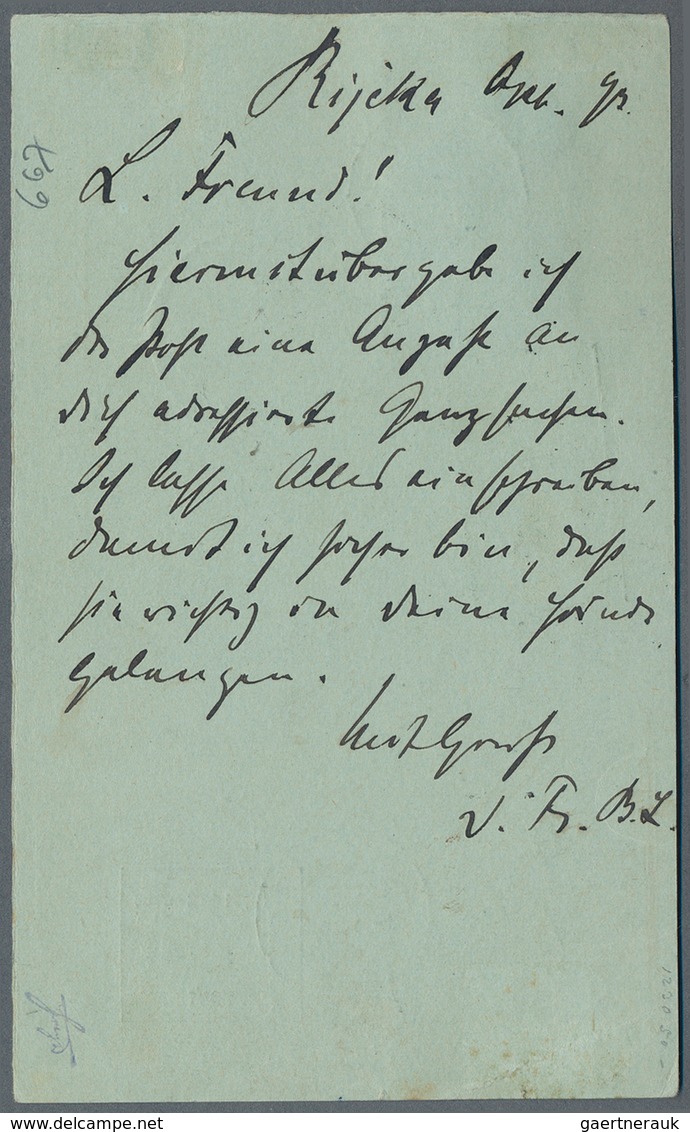 Rijeka
L. Freund!
Hiermit übergebe ich
der Post eine Anzahl an
dich adressierte Ganzsachen.
Ich lasse Alles einschreiben,
damit ich sicher bin, daß
sie richtig in deine Hände
gelangen.
Mit Gruß
d. Fr. B. L.
667
delcampe.net
gaertnerauk